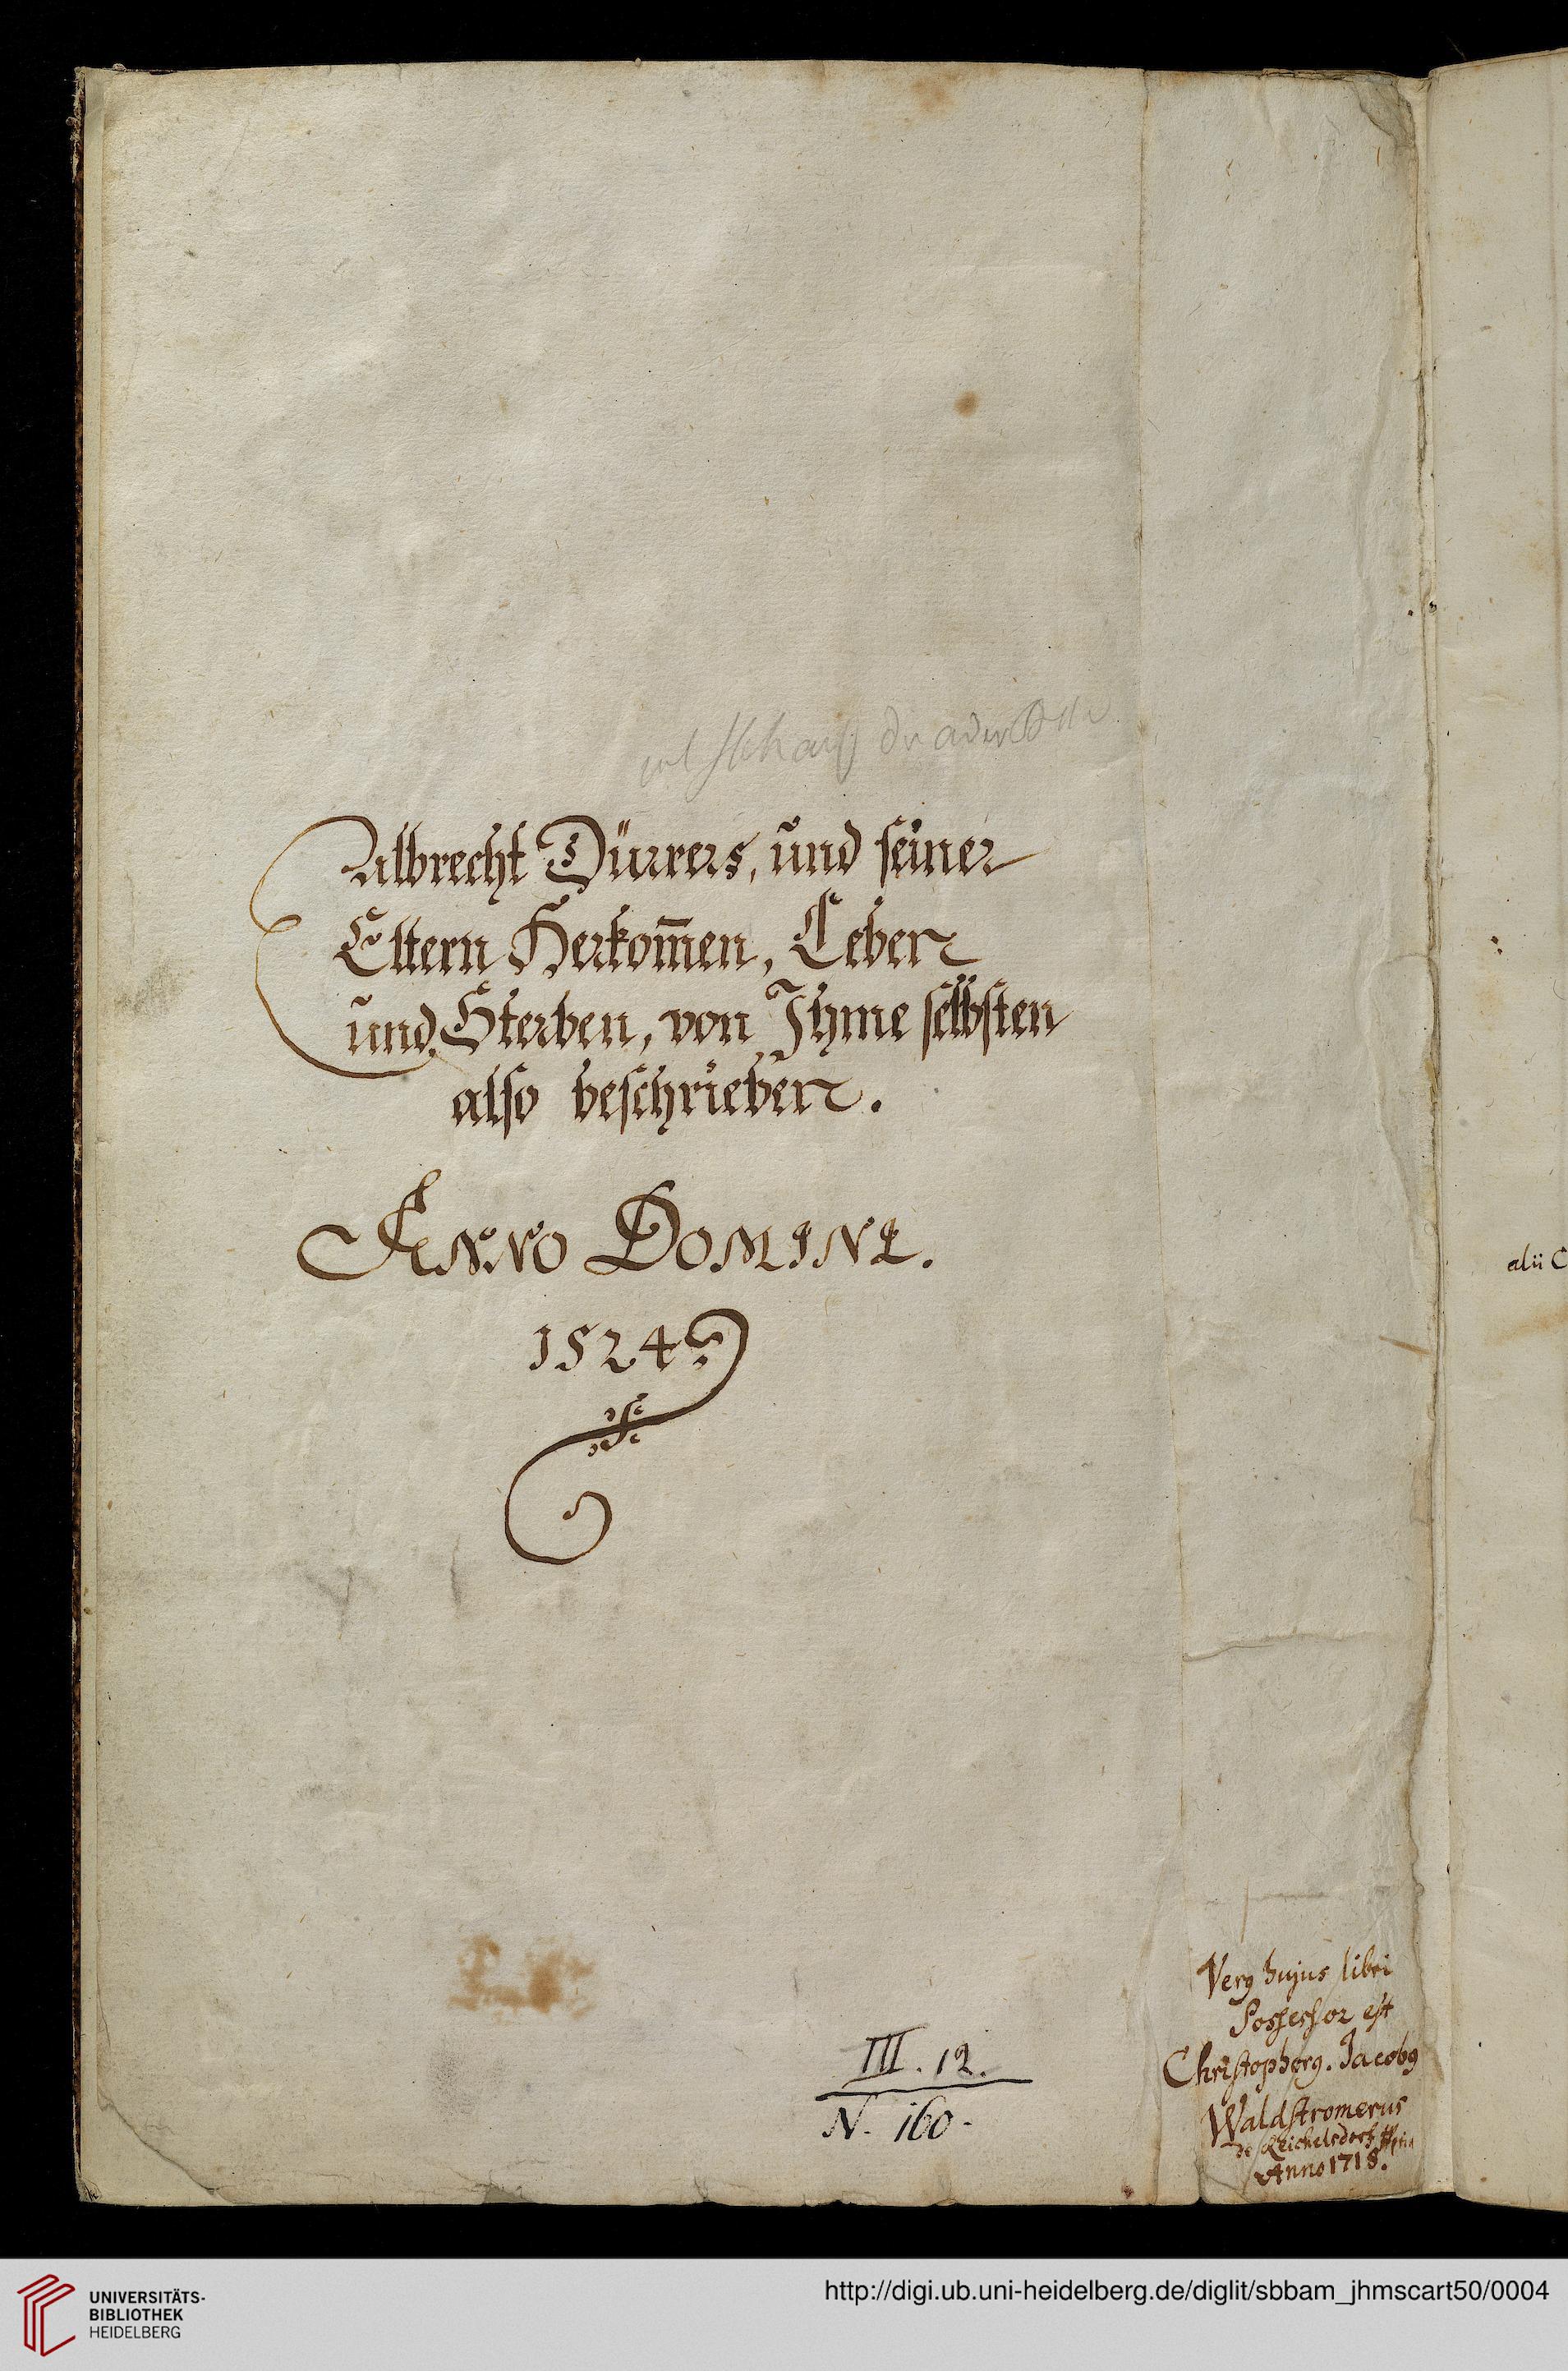 Albrecht Dürrers, und seiner
Eltern Herkom̄en, Leben
und Sterben, von Ihme selbsten
also beschrieben.
ANNO DOMINI.
1524.
III. 12.
N. 160.
Verꝰ hujus libri
Possessor est
Christophorꝰ. Jacobꝰ
Waldstromerus
de Reichelsdorf
Anno 1718.
alii C
UNIVERSITÄTS-
BIBLIOTHEK
HEIDELBERG
http://digi.ub.uni-heidelberg.de/diglit/sbbam_jhmscart50/0004